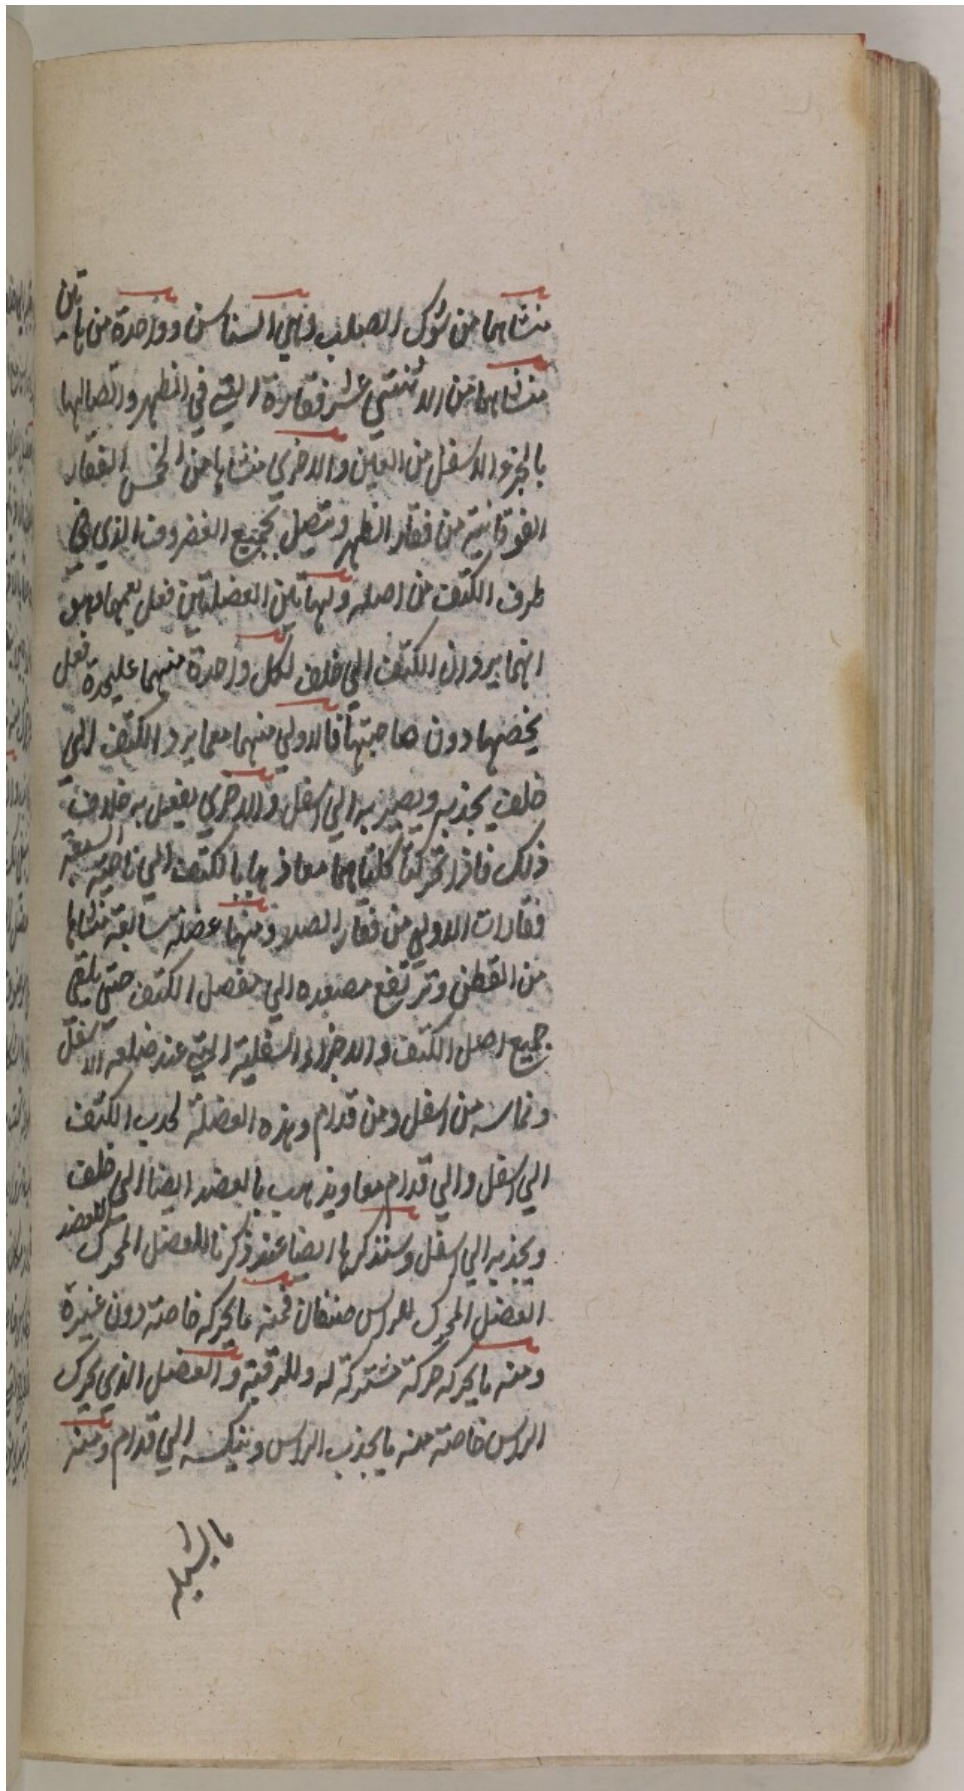 منشاهما من شوك الصلب وهي السناسن وواحدة من هاتين
منشاها من الاثنتي عشر فقارة التي في الظهر واتصالها
بالجزء الاسفل من العين والاخري منشاها من الخمس الفقار
الفوقانية من فقار الظهر وتتصل بجميع الغضروف الذي في
طرف الكتف من اصله ولهاتين العضلتين فعل يعمهما وهو
انهما يردان الكتف الي خلف لكل واحدة منهما عليحدة فعل
يخصها دون صاحبتها فالاولي منهما معما يرد الكتف الي
خلف يجذبه ويصير به الي اسفل والاخري يفعل به خلاف
ذلك فاذا تحركتا كلتاهما معا ذهبا بالكتف الي ناحية السبعة
فقارات الاولي من فقار الصدر ومنها عضلة سابعة منشاها
من القطن وترتفع مصعده الي مفصل الكتف حتي يلقي
جميع اصل الكتف والاجزاء السفلية التي عند ضلعه الاسفل
وتماسه من اسفل ومن قدام وهذه العضلة تجذب الكتف
الي اسفل والي قدام معا ويذهب بالعضد ايضا الي خلف
ويجذبه الي اسفل وسنذكرها ايضا عند ذكرنا للعضل المحرك للعضد
العضل المحرك للراس صنفان فمنه ما يحركه خاصة دون غيره
ومنه ما يحركه حركة مشتركة له وللرقبة والعضل الذي يحرك
الراس خاصة منه ما يجذب الراس وينكسه الي قدام ومنه